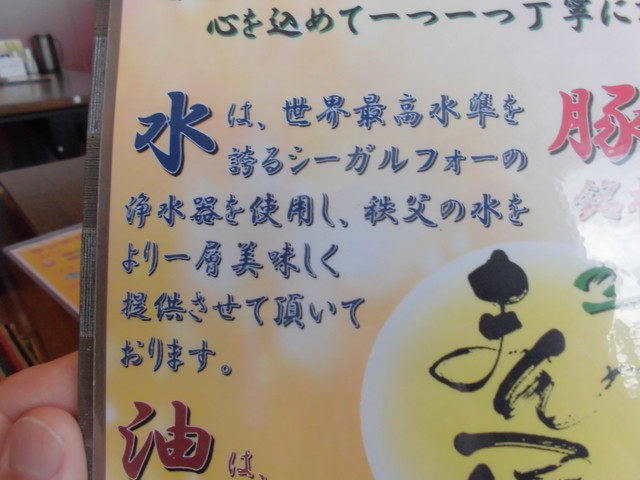 心を込めて一つ一つ丁寧に
水は、世界最高水準を
誇るシーガルフォーの
浄水器を使用し、秩父の水を
より一層美味しく
提供させて頂いて
おります。
油は、
豚
まん